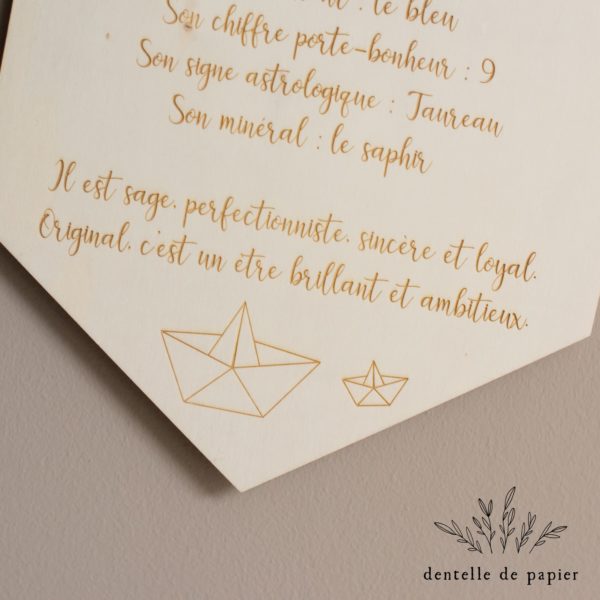 : le bleu
Son chiffre porte-bonheur : 9
Son signe astrologique : Taureau
Son minéral : le saphir
Il est sage, perfectionniste, sincère et loyal.
Original, c'est un être brillant et ambitieux.
dentelle de papier